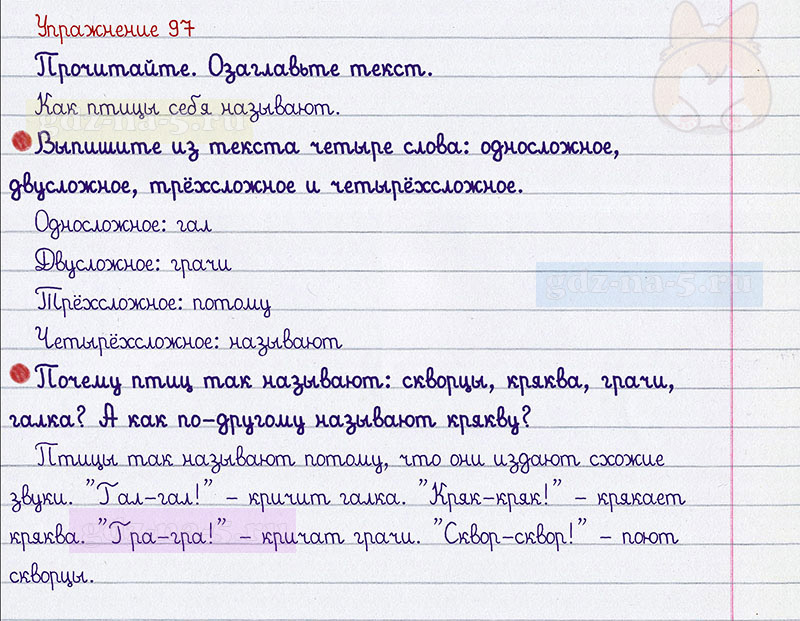 Упражнение 97
Прочитайте. Озаглавьте текст.
Как птицы себя называют.
gdz-na-5.ru
Выпишите из текста четыре слова: односложное,
двусложное, трёхсложное и четырёхсложное.
Односложное: гал
Двусложное: грачи
gdz-na-5.ru
Трёхсложное: потому
Четырёхсложное: называют
Почему птиц так называют: скворцы, кряква, грачи,
галка? А как по-другому называют крякву?
Птицы так называют потому, что они издают схожие
звуки. "Гал-гал!" - кричит галка. "Кряк-кряк!" - крякает
кряква. "Гра-гра!" - кричат грачи. "Сквор-сквор!" - поют
gdz-na-5.ru
скворцы.